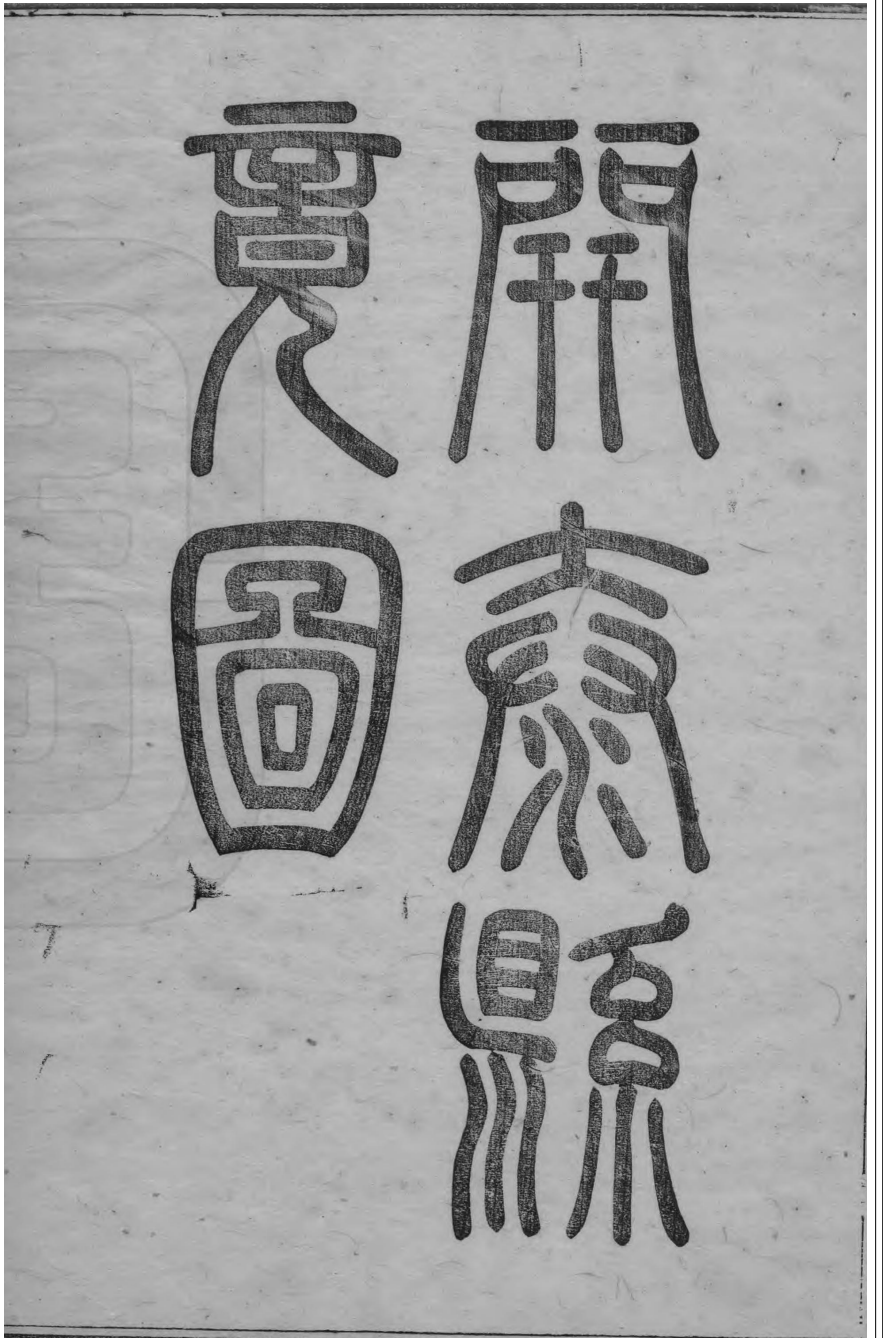 開泰縣
竟圖